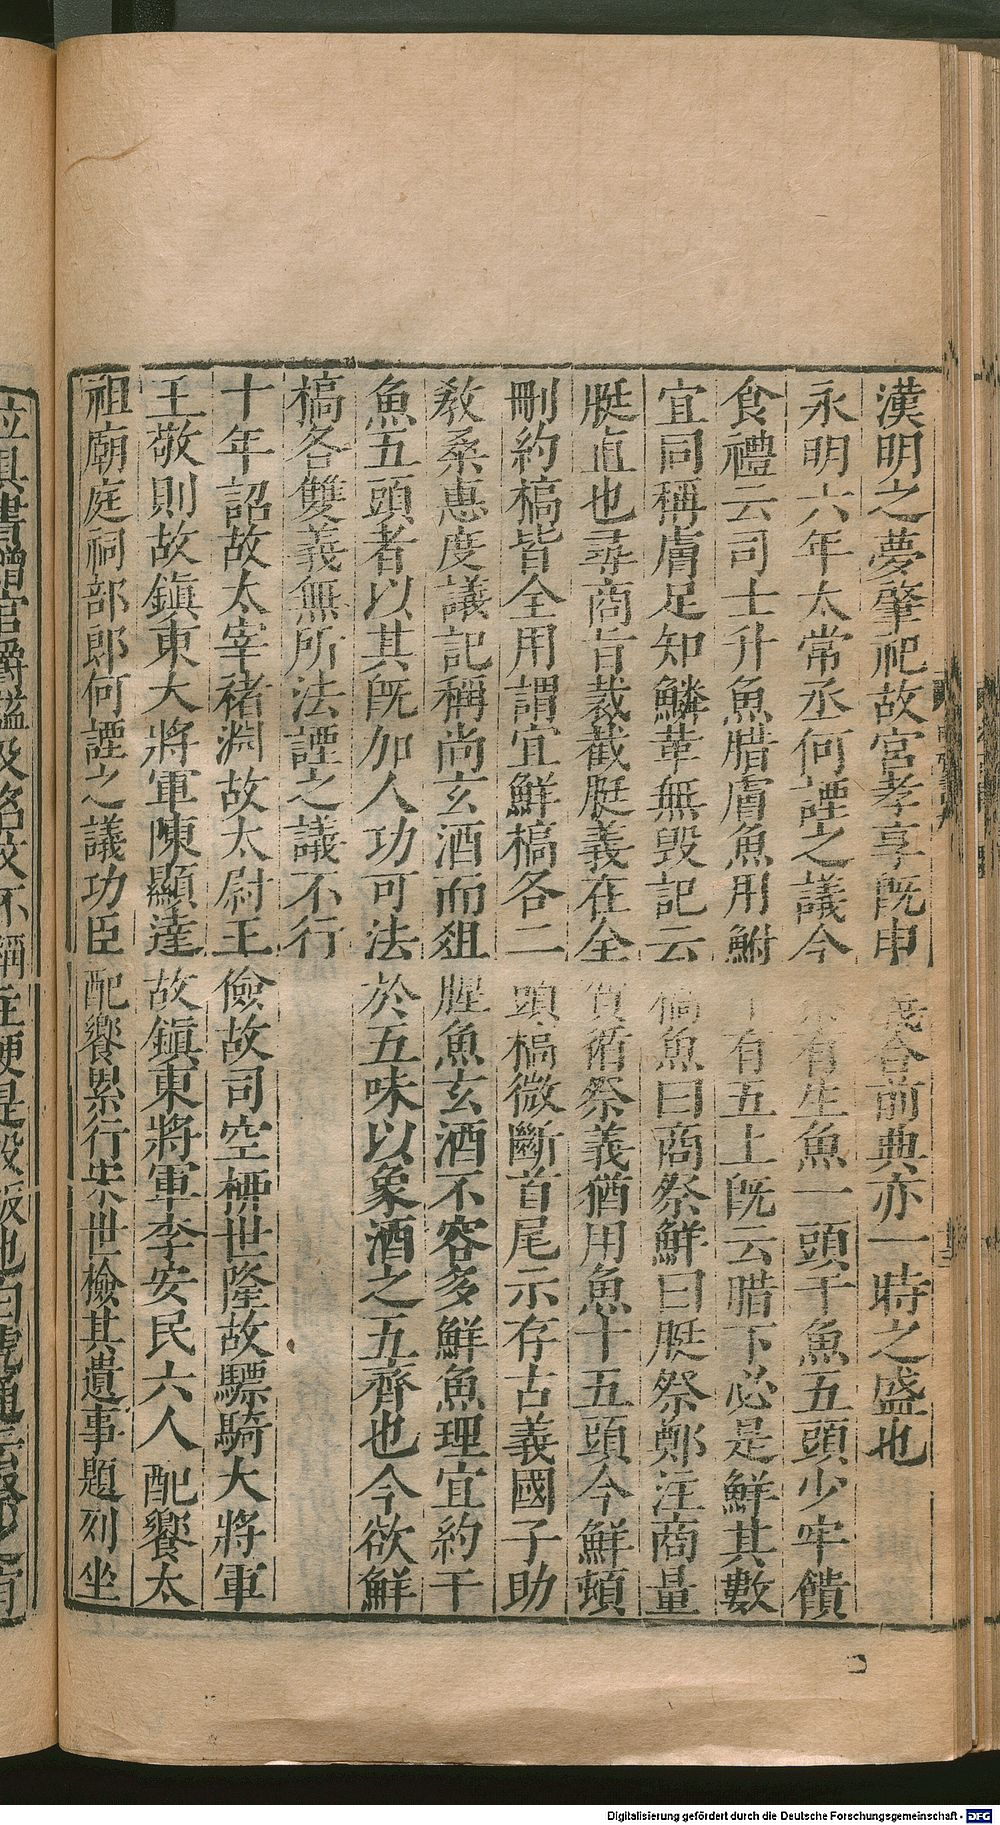 漢明之夢肇祀故宮孝享既申義合前典亦一時之盛也
永明六年太常丞何諲之議今祭有生魚一頭干魚五頭少牢饋
食禮云司士升魚腊膚魚用鮒十有五上既云腊下必是鮮其數
宜同稱膚足知鱗革無毀記云槁魚曰商祭鮮曰脡祭鄭注商量
脡直也尋商旨裁截脡義在全賀循祭義猶用魚十五頭今鮮頓
刪約槁皆全用謂宜鮮槁各二頭槁微斷首尾示存古義國子助
教桑惠度議記稱尚玄酒而俎腥魚玄酒不容多鮮魚理宜約干
魚五頭者以其既加人功可法於五味以象酒之五齊也今欲鮮
槁各雙義無所法諲之議不行
十年詔故太宰褚淵故太尉王儉故司空柳世隆故驃騎大將軍
王敬則故鎮東大將軍陳顯達故鎮東將軍李安民六人配饗太
祖廟庭祠部郎何諲之議功臣配饗累行宋世檢其遺事題列坐
Digitalisierung gefördert durch die Deutsche Forschungsgemeinschaft - DFG